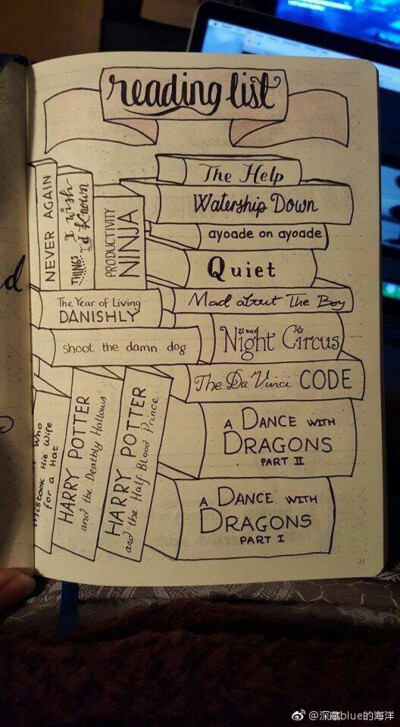 reading list
NEVER AGAIN
THINGS I wish
I'd Known
PRODUCTIVITY
NINJA
The Help
Watership Down
ayoade on ayoade
Quiet
Mad about The Boy
The Year of Living
DANISHLY
Shoot the damn dog
The Night Circus
The Da Vinci CODE
Who
Mistook His Wife
for a Hat
HARRY POTTER
and the Deathly Hallows
HARRY POTTER
and the Half Blood Prince
A DANCE WITH
DRAGONS
PART II
A DANCE WITH
DRAGONS
PART I
21
@深藏blue的海洋